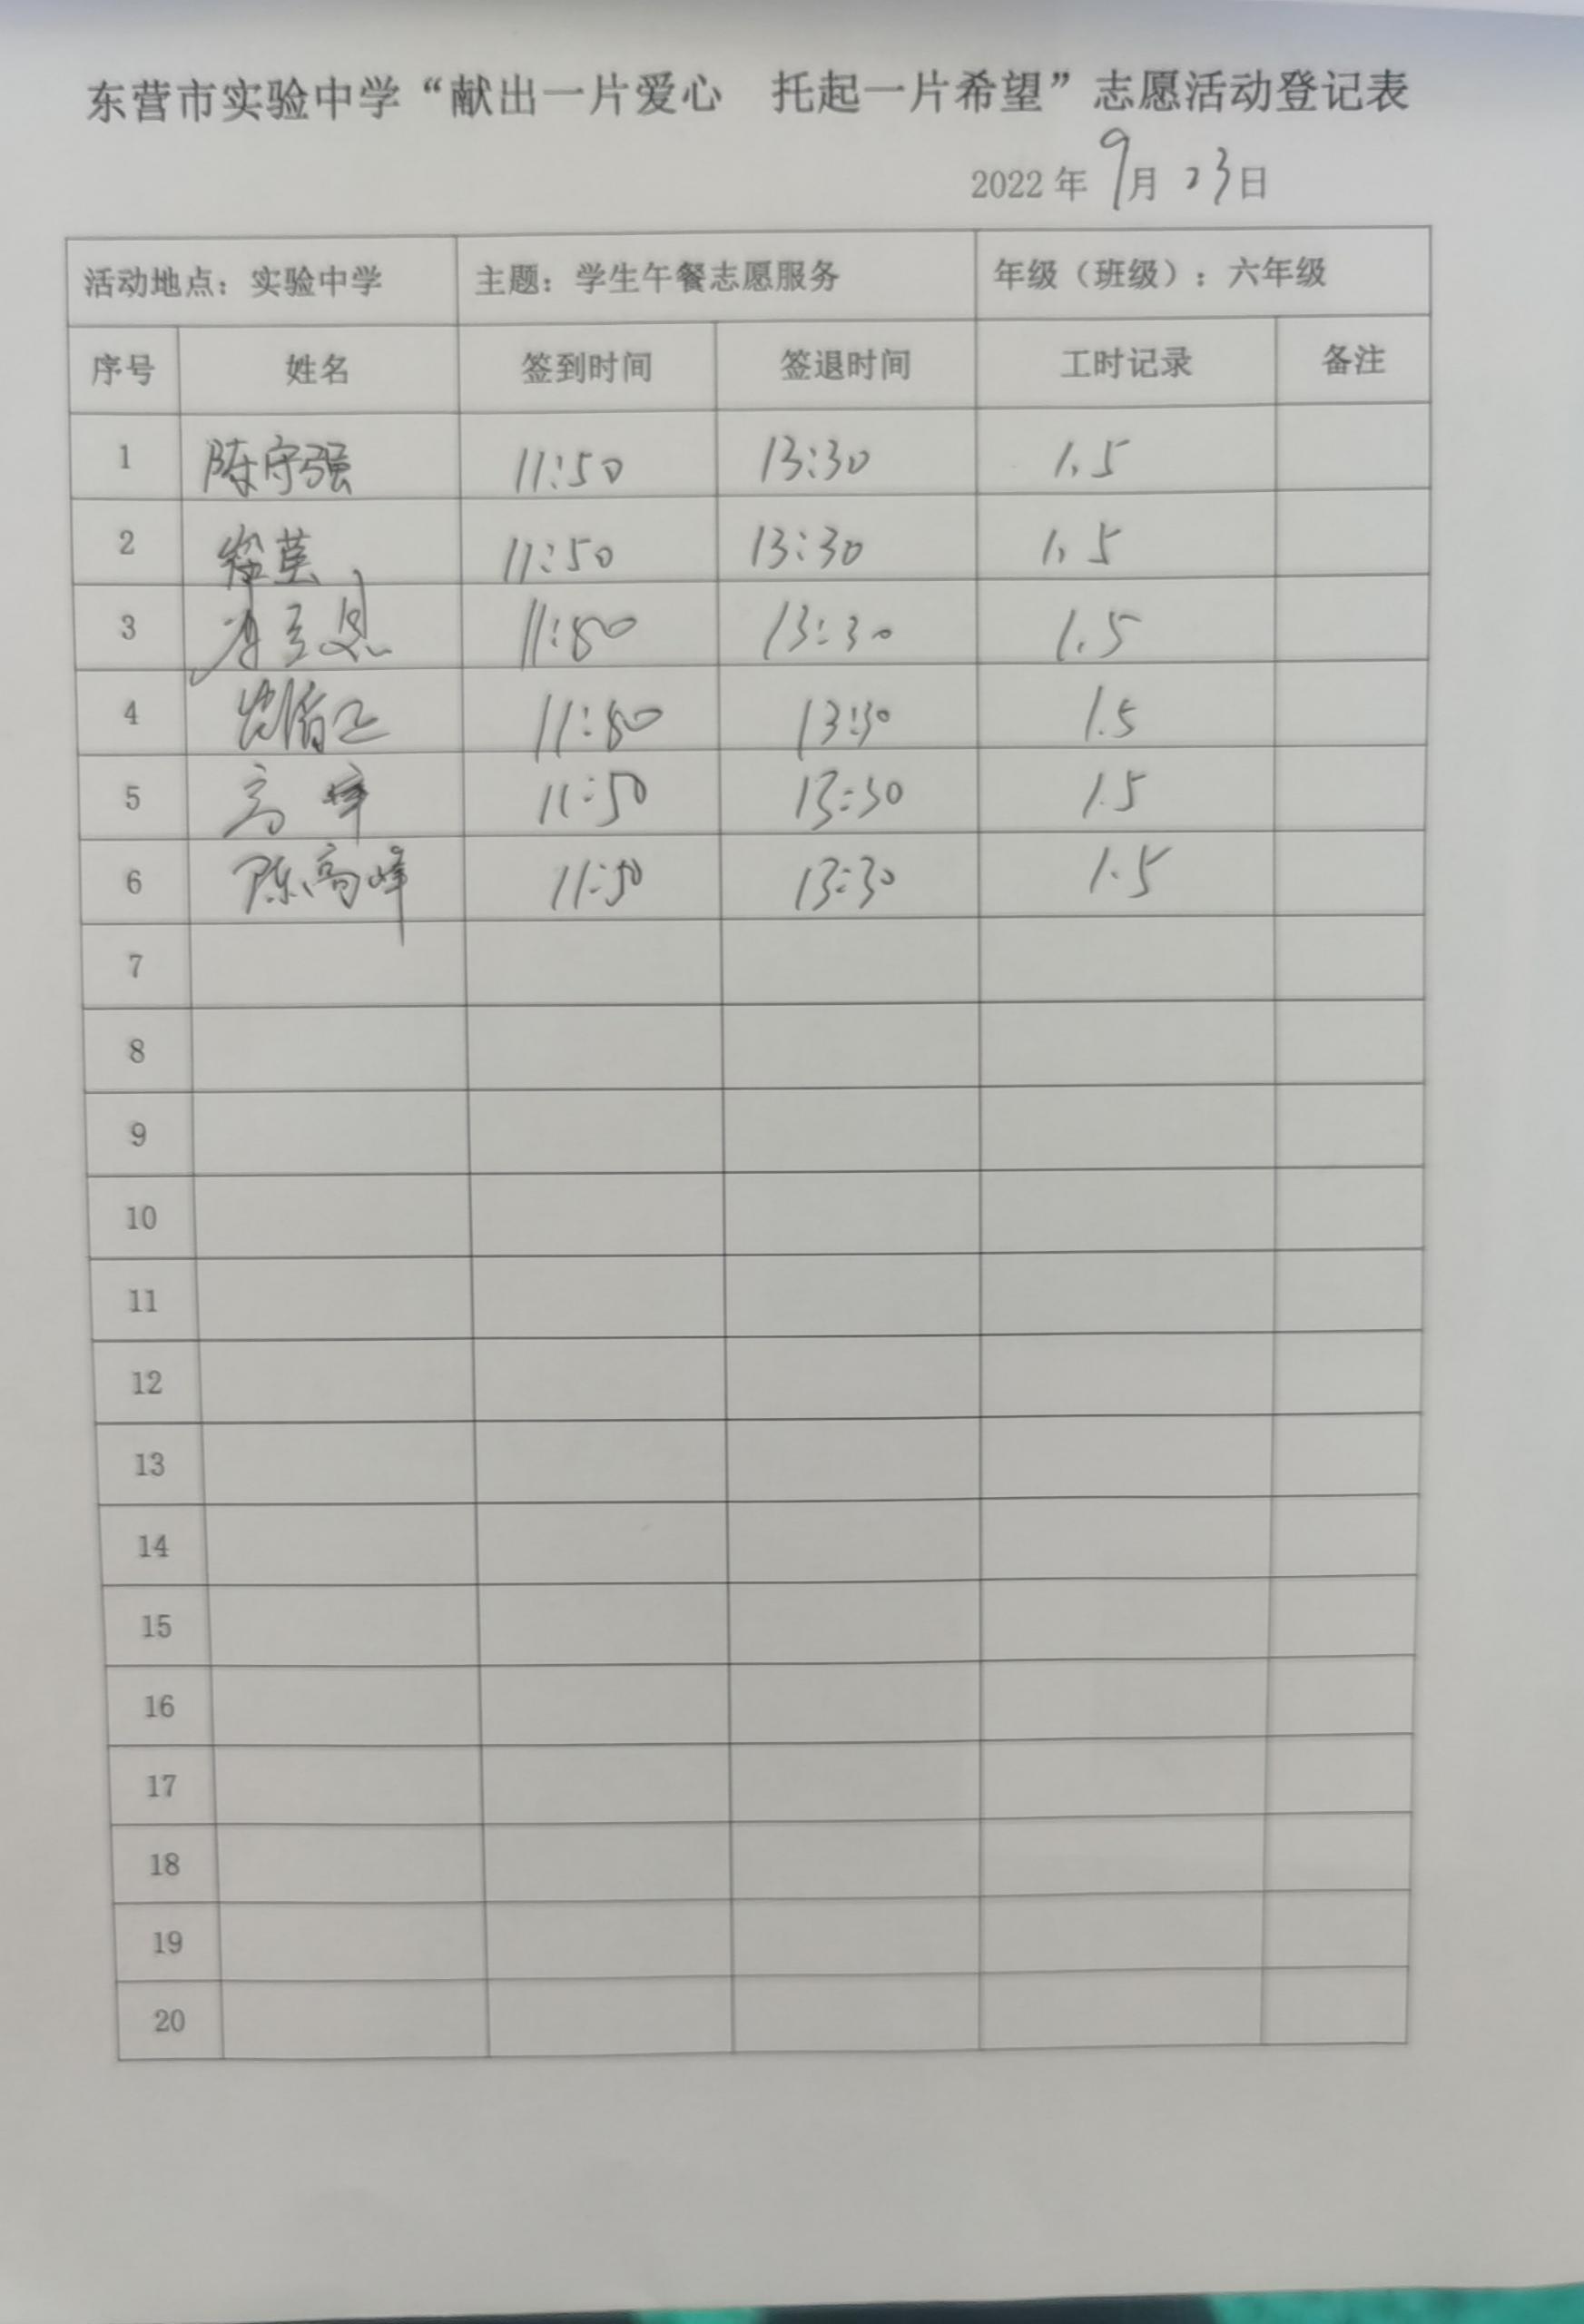 东营市实验中学“献出一片爱心 托起一片希望”志愿活动登记表
2022年9月23日
活动地点：实验中学 主题：学生午餐志愿服务 年级（班级）：六年级
序号 姓名 签到时间 签退时间 工时记录 备注
1 陈守强 11:50 13:30 1.5
2 11:50 13:30 1.5
3 11:50 13:30 1.5
4 11:50 13:30 1.5
5 高 11:50 13:30 1.5
6 陈高峰 11:50 13:30 1.5
7
8
9
10
11
12
13
14
15
16
17
18
19
20